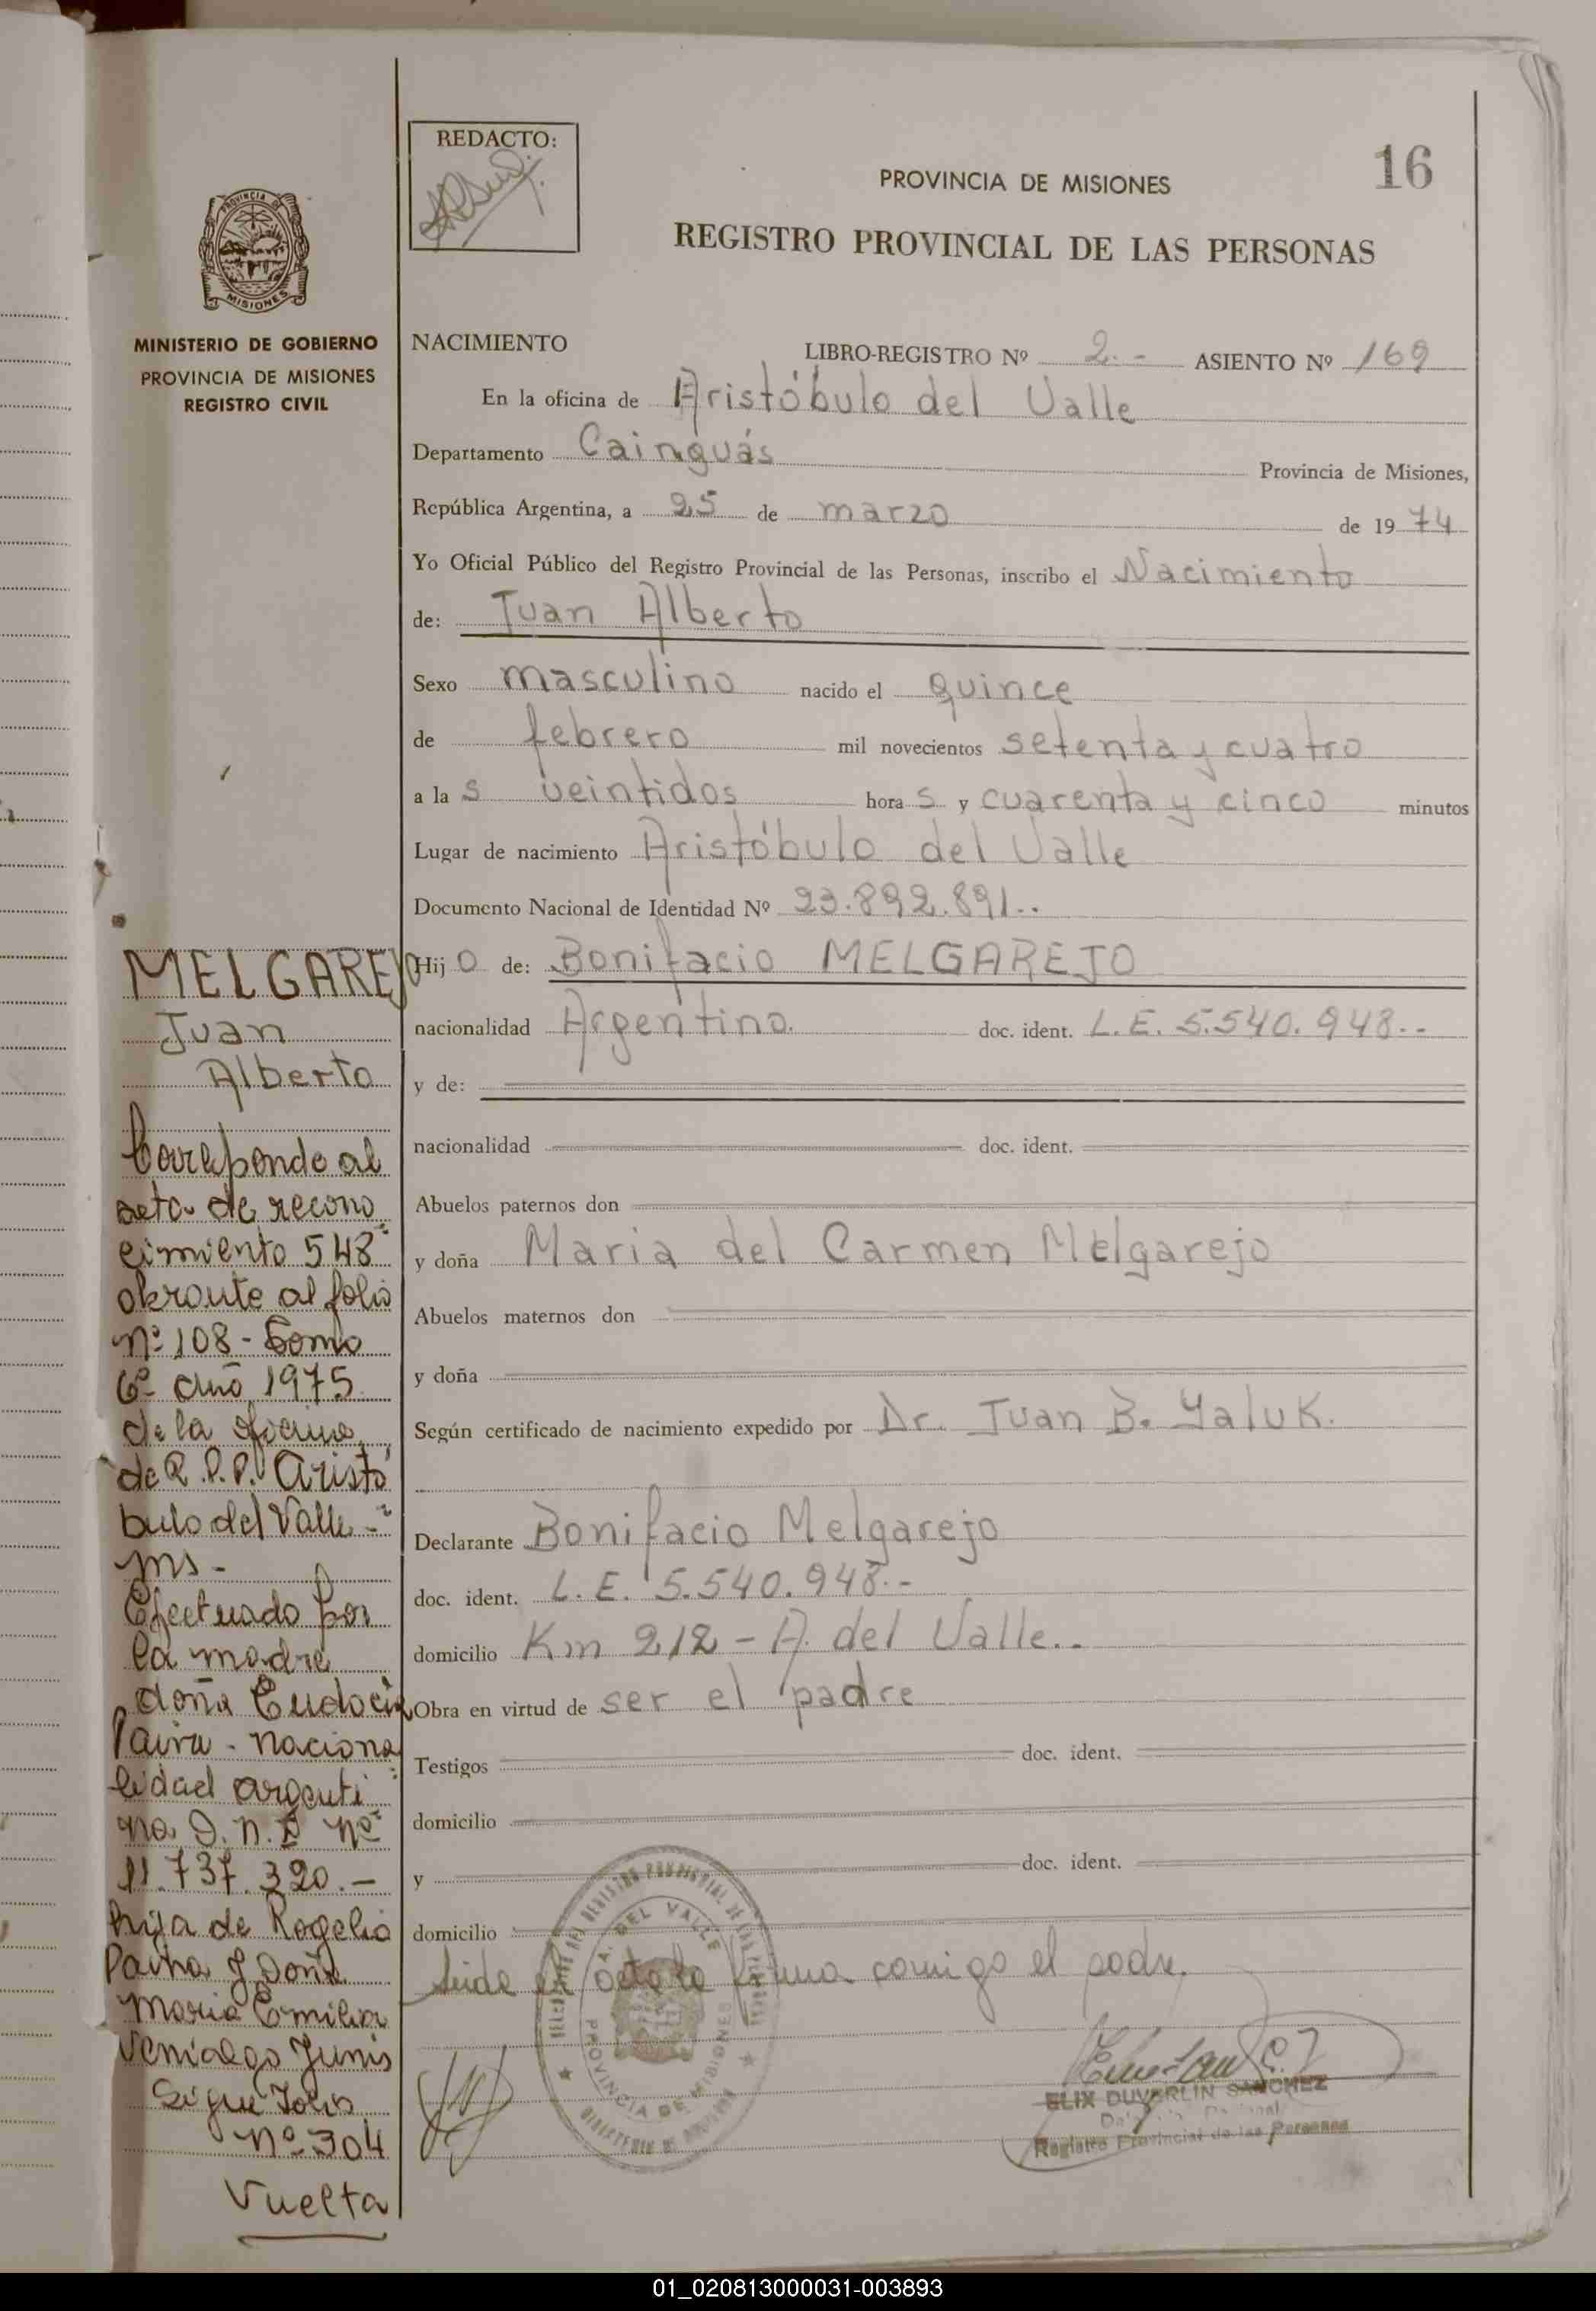 REDACTO:
16
PROVINCIA DE MISIONES
REGISTRO PROVINCIAL DE LAS PERSONAS
PROVINCIA DE
MISIONES
MINISTERIO DE GOBIERNO
PROVINCIA DE MISIONES
REGISTRO CIVIL
NACIMIENTO
LIBRO-REGISTRO Nº 2.- ASIENTO Nº 169
En la oficina de Aristóbulo del Valle
Departamento Cainguás Provincia de Misiones,
República Argentina, a 25 de marzo de 1974
Yo Oficial Público del Registro Provincial de las Personas, inscribo el Nacimiento
de: Juan Alberto
Sexo masculino nacido el quince
de febrero mil novecientos setenta y cuatro
a las veintidos horas y cuarenta y cinco minutos
Lugar de nacimiento Aristóbulo del Valle
Documento Nacional de Identidad Nº 23.892.891..
Hijo de: Bonifacio MELGAREJO
nacionalidad Argentino. doc. ident. L.E. 5.540.948..
y de:
nacionalidad doc. ident.
Abuelos paternos don
y doña Maria del Carmen Melgarejo
Abuelos maternos don
y doña
Según certificado de nacimiento expedido por Dr. Juan B. Yaluk.
Declarante Bonifacio Melgarejo
doc. ident. L.E. 5.540.948.-
domicilio Km 212 - A. del Valle..
Obra en virtud de ser el padre
Testigos doc. ident.
domicilio
y doc. ident.
domicilio
el acta la firma comigo el padre.
A. DEL VALLE
PROVINCIA DE MISIONES
ELIX DUVERLIN SANCHEZ
Registro Provincial de las Personas
MELGAREJO
Juan
Alberto
Correponde al
acta de recono
cimiento 548
obrante al folio
Nº 108 - Tomo
6º año 1975
de la oficina
de R.P.P. Aristo
bulo del Valle -
Ms -
Efectuado por
la madre
doña Eudocia
Paiva - naciona
lidad argenti
na D.N.I Nº
11.737.320.-
hija de Rogelio
Paiva y Doña
Maria Emilia
Venialgo
Sigue Folio
Nº 304
Vuelta
01_020813000031-003893